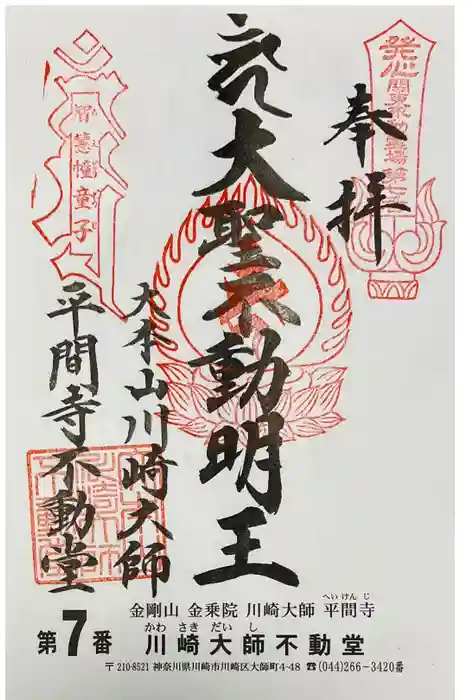 奉拝
発心
関東不動霊場第七番
大聖不動明王
智慧幢童子
大本山川崎大師
平間寺不動堂
金剛山 金乗院 川崎大師 平間寺
へいけんじ
第7番 川崎大師不動堂
かわさきだいし
〒210-8521 神奈川県川崎市川崎区大師町4-48 ☎(044)266-3420番